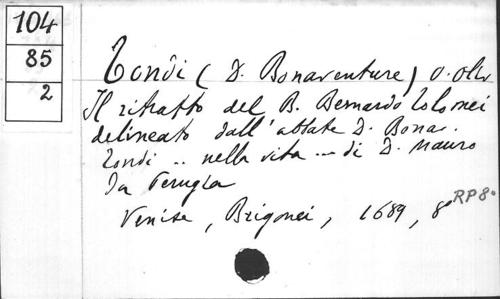 104
85
2
Tondi (D. Bonaventure) O. Oliv
Il ritratto del B. Bernardo Tolomei
delineato dall'abbate D. Bona.
Tondi .. nella vita ... di D. Mauro
Da Perugia
Venise, Brigonci, 1689, 8°
RP 8°